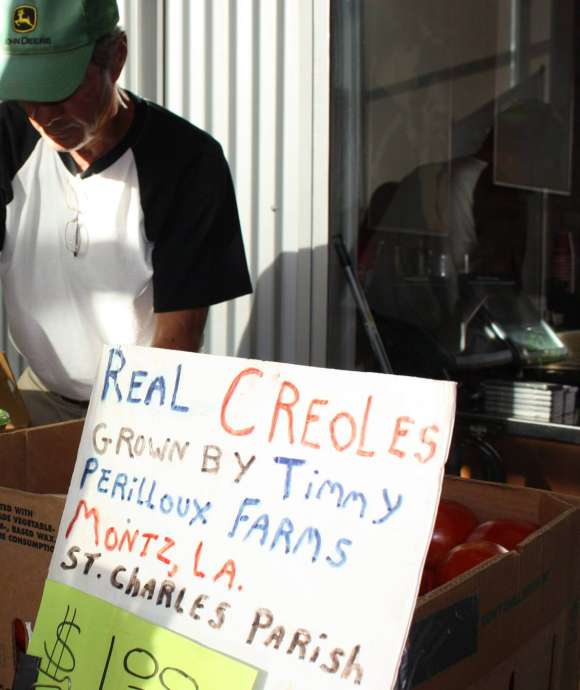 JOHN DEERE
REAL CREOLES
GROWN BY TIMMY
PERILLOUX FARMS
MONTZ, LA.
ST. CHARLES PARISH
$ 1.00
WITH
VEGETABLE-
BASED WAX.
CONSUMPTION